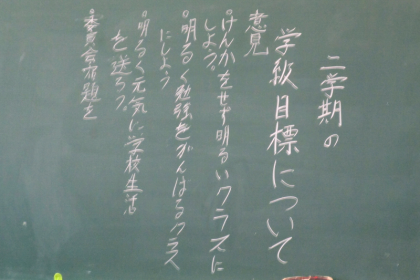 二学期の
学級目標について
意見
・けんかをせず明るいクラスに
しよう。
・明るく勉強をがんばるクラス
にしよう
・明るく元気に学校生活
を送ろう。
・委員会宿題を